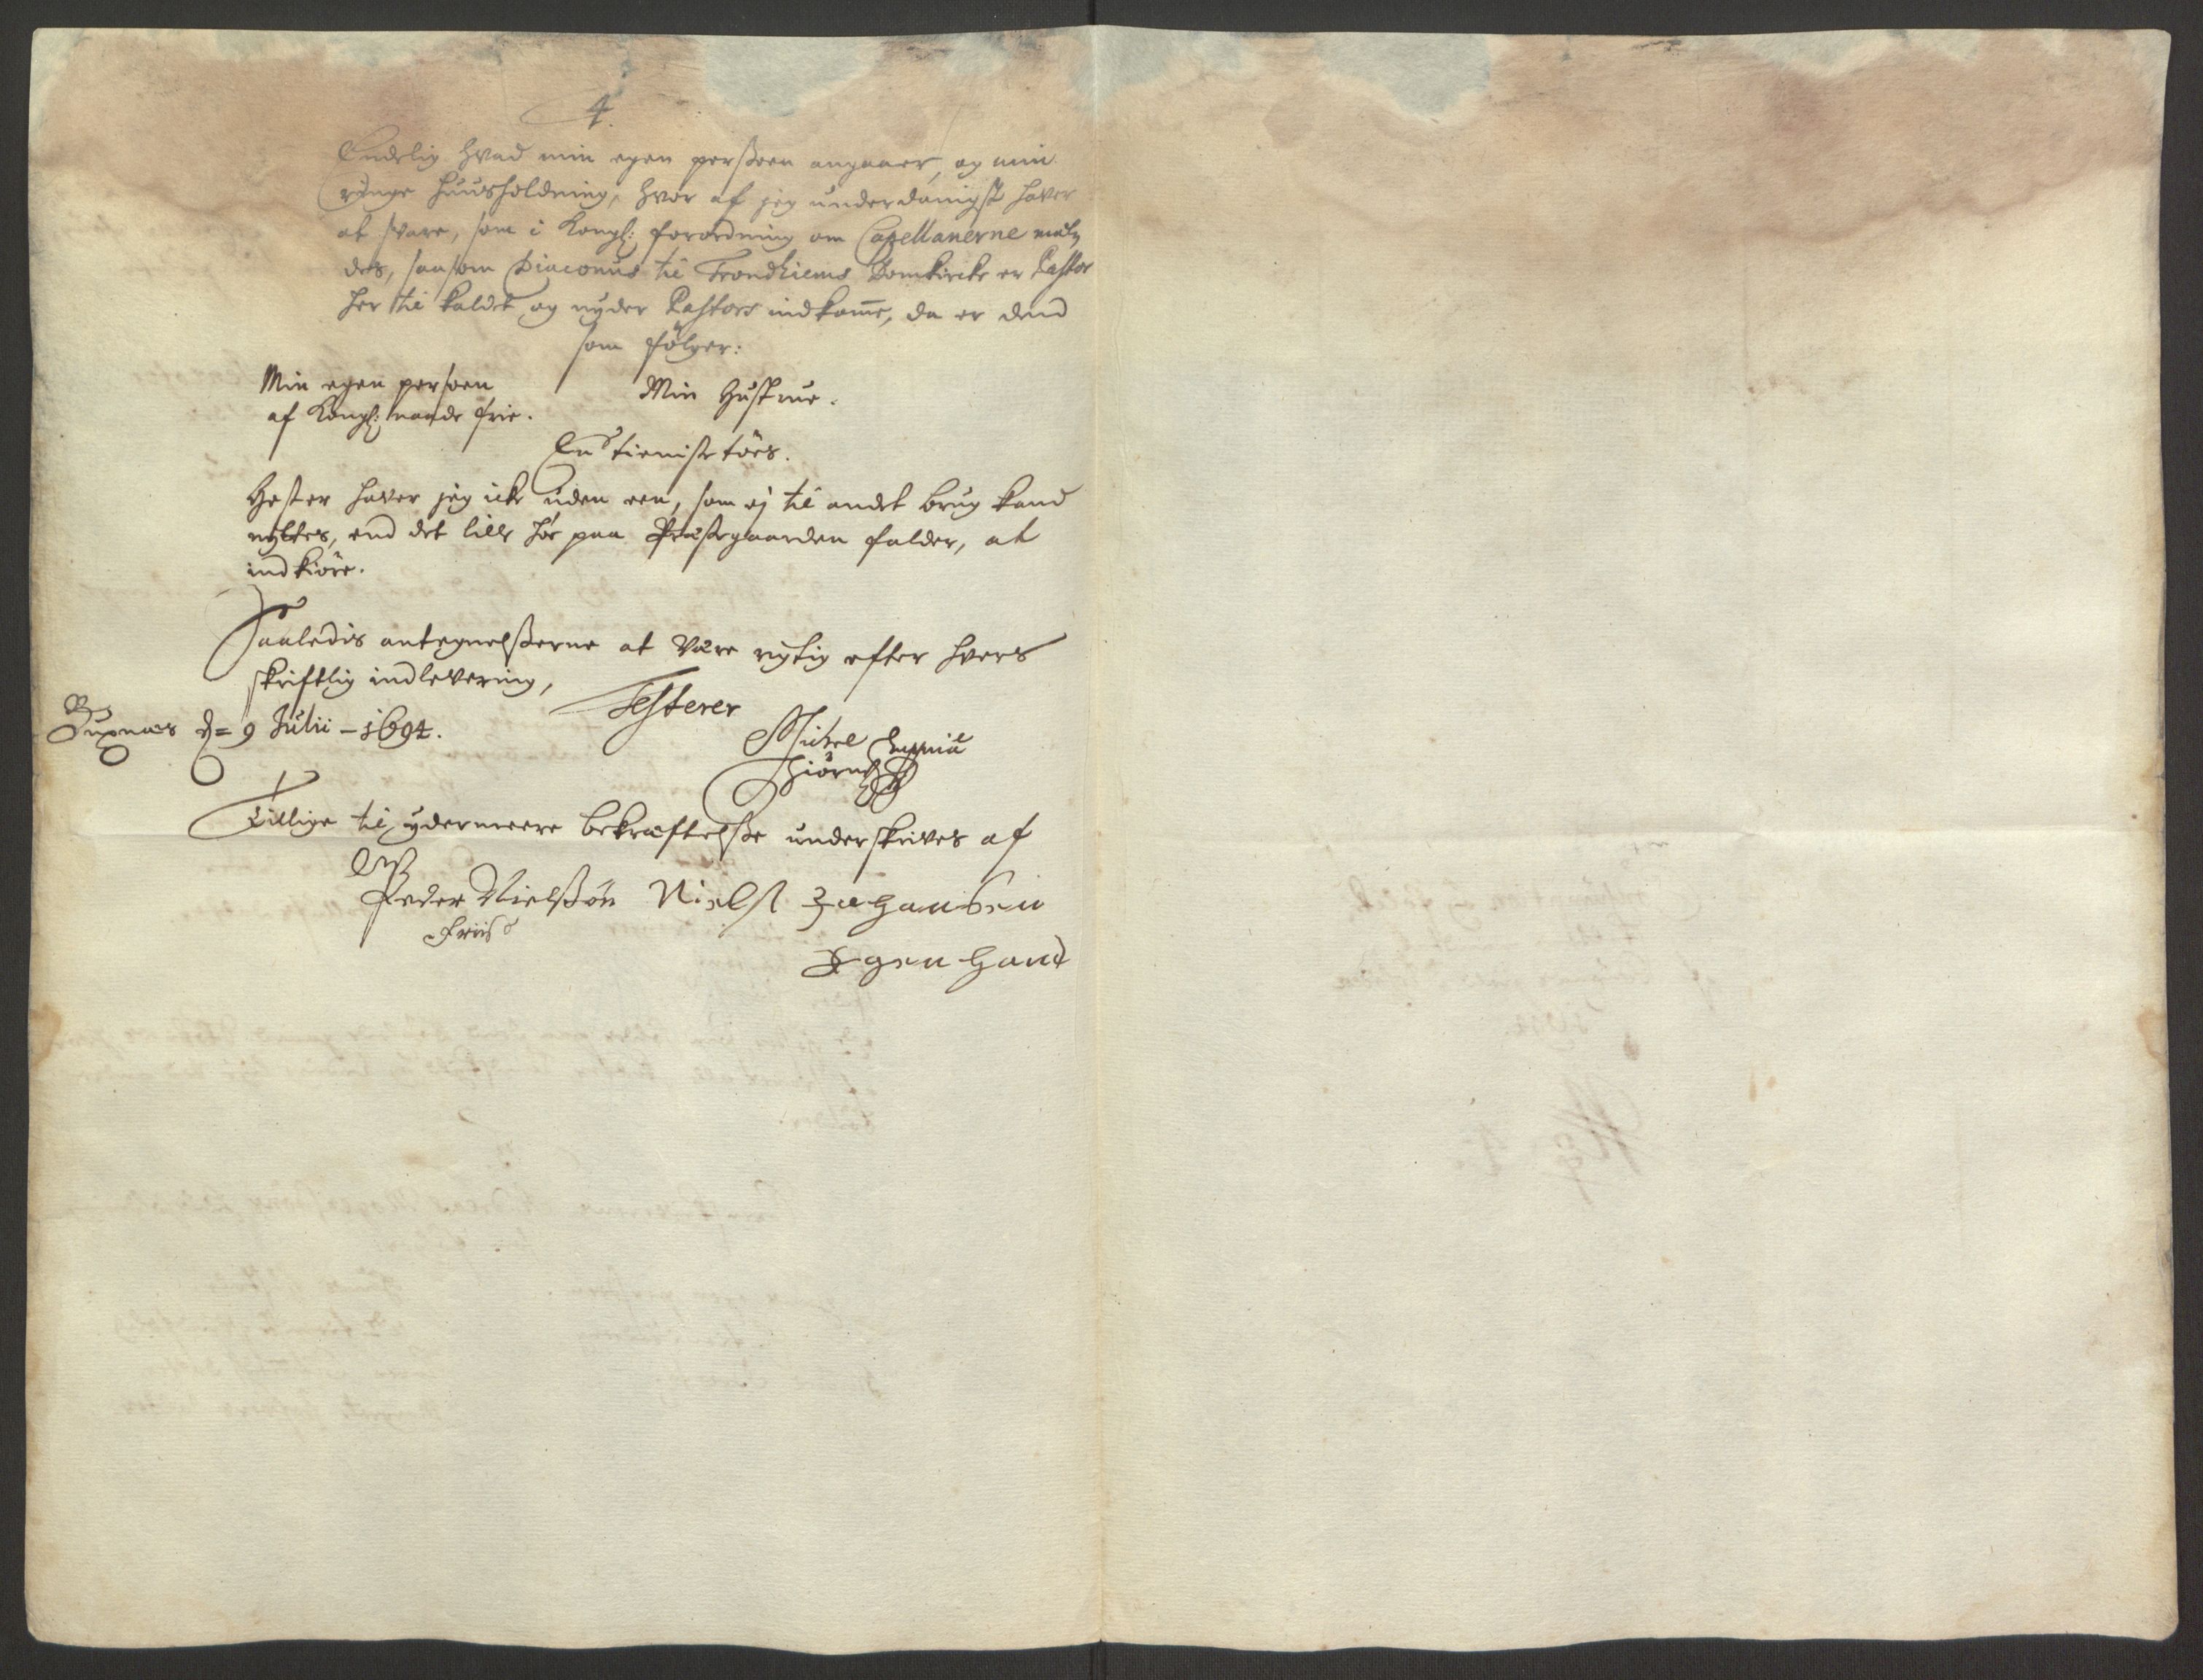 4.
Endelig hvad min egen perßoen angaaer, og min
ringe huusholdning, hvor af jeg underdanigst haver
at svare, som i Kongl: forordning om Capellanerne mel„
des, saasom Diaconus til Trondhiems Domkircke er Pastor
her til kaldet og nyder Pastors indkome, da er dend
som følger:
Min egen persoen
af Kongl: naade frie.
Min Hustrue.
En tieniste tøes.
Hester haver jeg icke uden een, som ej til andet brug kand
nyttes, end det lille høe paa Præstegaarden falder, at
indkiøre.
Saaledis antegnelßerne at være rigtig efter hvers
skriftlig indlevering,
Testerer
Buxnæs d= 9 Julii - 1694.
Michel
Hiørn
Tillige til ydermeere bekræftelsse underskrives af
Peder Nielßøn
Friis
Nielß Johansen
Egen Hand